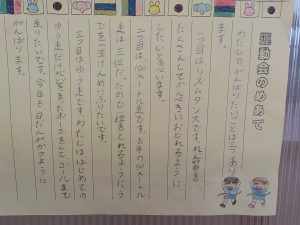 運動会のめあて
わたしのがんばりたいことは三つあり
ます。
一つ目はリズムダンスです。れん習を
たくさんしてかんぺきにおどれるように
したいと思います。
二つ目は、80メートル走です。去年の50メートル
走は三位だったので一位をとれるように、う
でを一生けんめいふりたいです。
三つ目はゆう走です。わたしははじめての
ゆう走だけれど、ゴールまで
走りたいです。今年も白だんがかつように
がんばります。